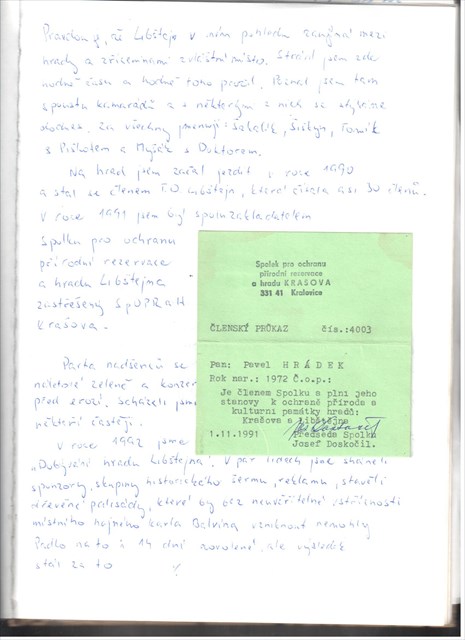 Pravdou je, že Libštejn v mém pohledu zaujímá mezi
hrady a zříceninami zvláštní místo. Strávil jsem zde
hodně času a hodně toho prožil. Poznal jsem tam
spoustu kamarádů a s některým z nich se stýkáme
dodnes. Za všechny jmenuji: Šakalík, Tomík
s Piškotem a Myšák s Doktorem.
Na hrad jsem začal jezdit v roce 1990
a stal se členem T.O. Libštejn, která čítala asi 30 členů.
V roce 1991 jsem byl spoluzakladatelem
Spolku pro ochranu
přírodní rezervace
a hradu Libštejna
zastřešený SpOPRaH
Krašova.
Spolek pro ochranu
přírodní rezervace
a hradu KRAŠOVA
331 41 Kralovice
ČLENSKÝ PRŮKAZ čís.:4003
Pan: Pavel HRÁDEK
Rok nar.: 1972 Č.o.p.:
Je členem Spolku a plní jeho
stanovy k ochraně přírody a
kulturní památky hradů:
Krašova a Libštejna
1.11.1991 Předseda Spolku
Josef Doskočil.
Parta nadšenců se
náletové zeleně a konzer
před erozí. Scházeli jsme
někteří častěji.
V roce 1992 jsme
„Dobývání hradu Libštejna". V pár lidech jsme sháněli
sponzory, skupiny historického šermu, reklamu, stavěli
dřevěné palisády, které by bez neuvěřitelné vstřícnosti
místního hajného Karla Balvína vzniknout nemohly
Padlo na to i 14 dní dovolené, ale výsledek
stál za to